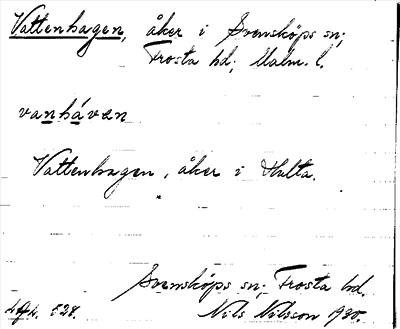 Vattenhagen, åker i Svensköps sn;
Frosta hd; Malm. l.
vanháven
Vattenhagen, åker i Hulta.
Svensköps sn; Frosta hd.
Nils Nilsson 1920.